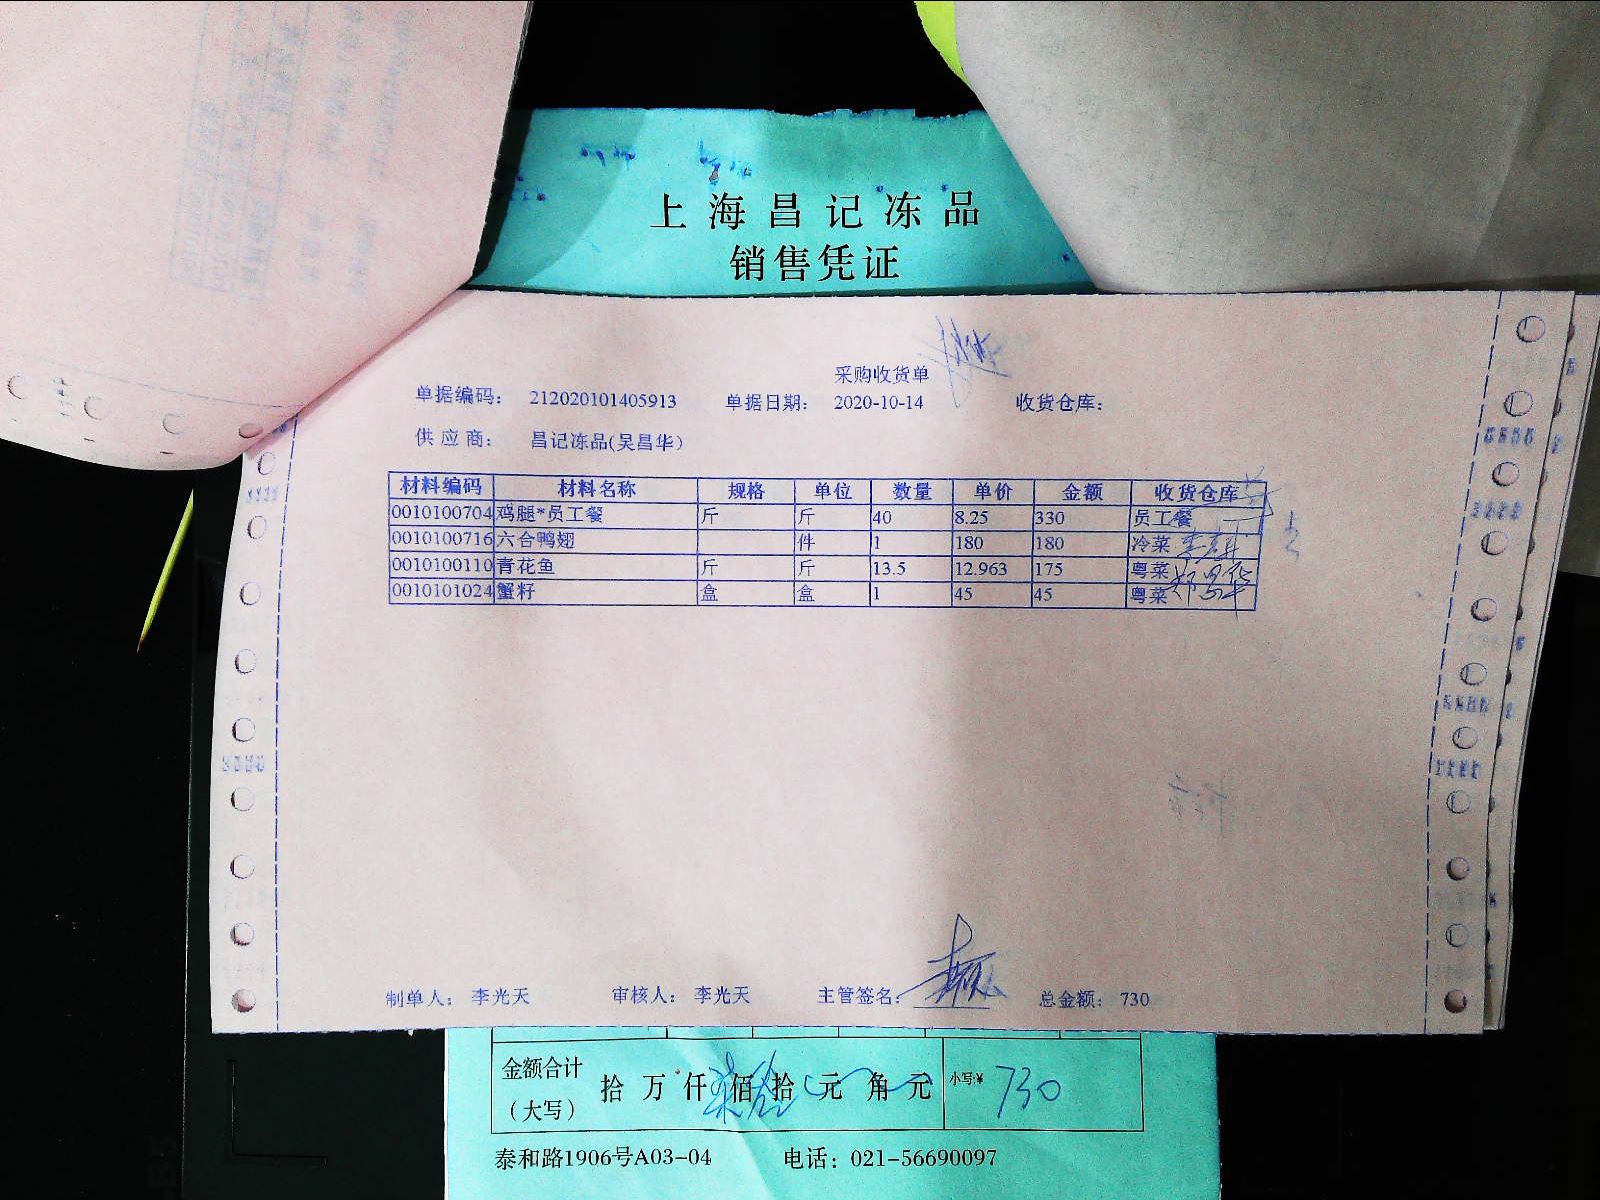 上海昌记冻品
销售凭证
采购收货单
单据编码： 212020101405913 单据日期： 2020-10-14 收货仓库：
供应商： 昌记冻品(吴昌华)
材料编码 材料名称 规格 单位 数量 单价 金额 收货仓库
0010100704 鸡腿*员工餐 斤 斤 40 8.25 330 员工餐
0010100716 六合鸭翅 件 1 180 180 冷菜
0010100110 青花鱼 斤 斤 13.5 12.963 175 粤菜
0010101024 蟹籽 盒 盒 1 45 45 粤菜
制单人： 李光天 审核人： 李光天 主管签名： 总金额： 730
金额合计（大写） 拾 万 仟 佰 拾 元 角 元 小写:¥ 730
泰和路1906号A03-04 电话：021-56690097